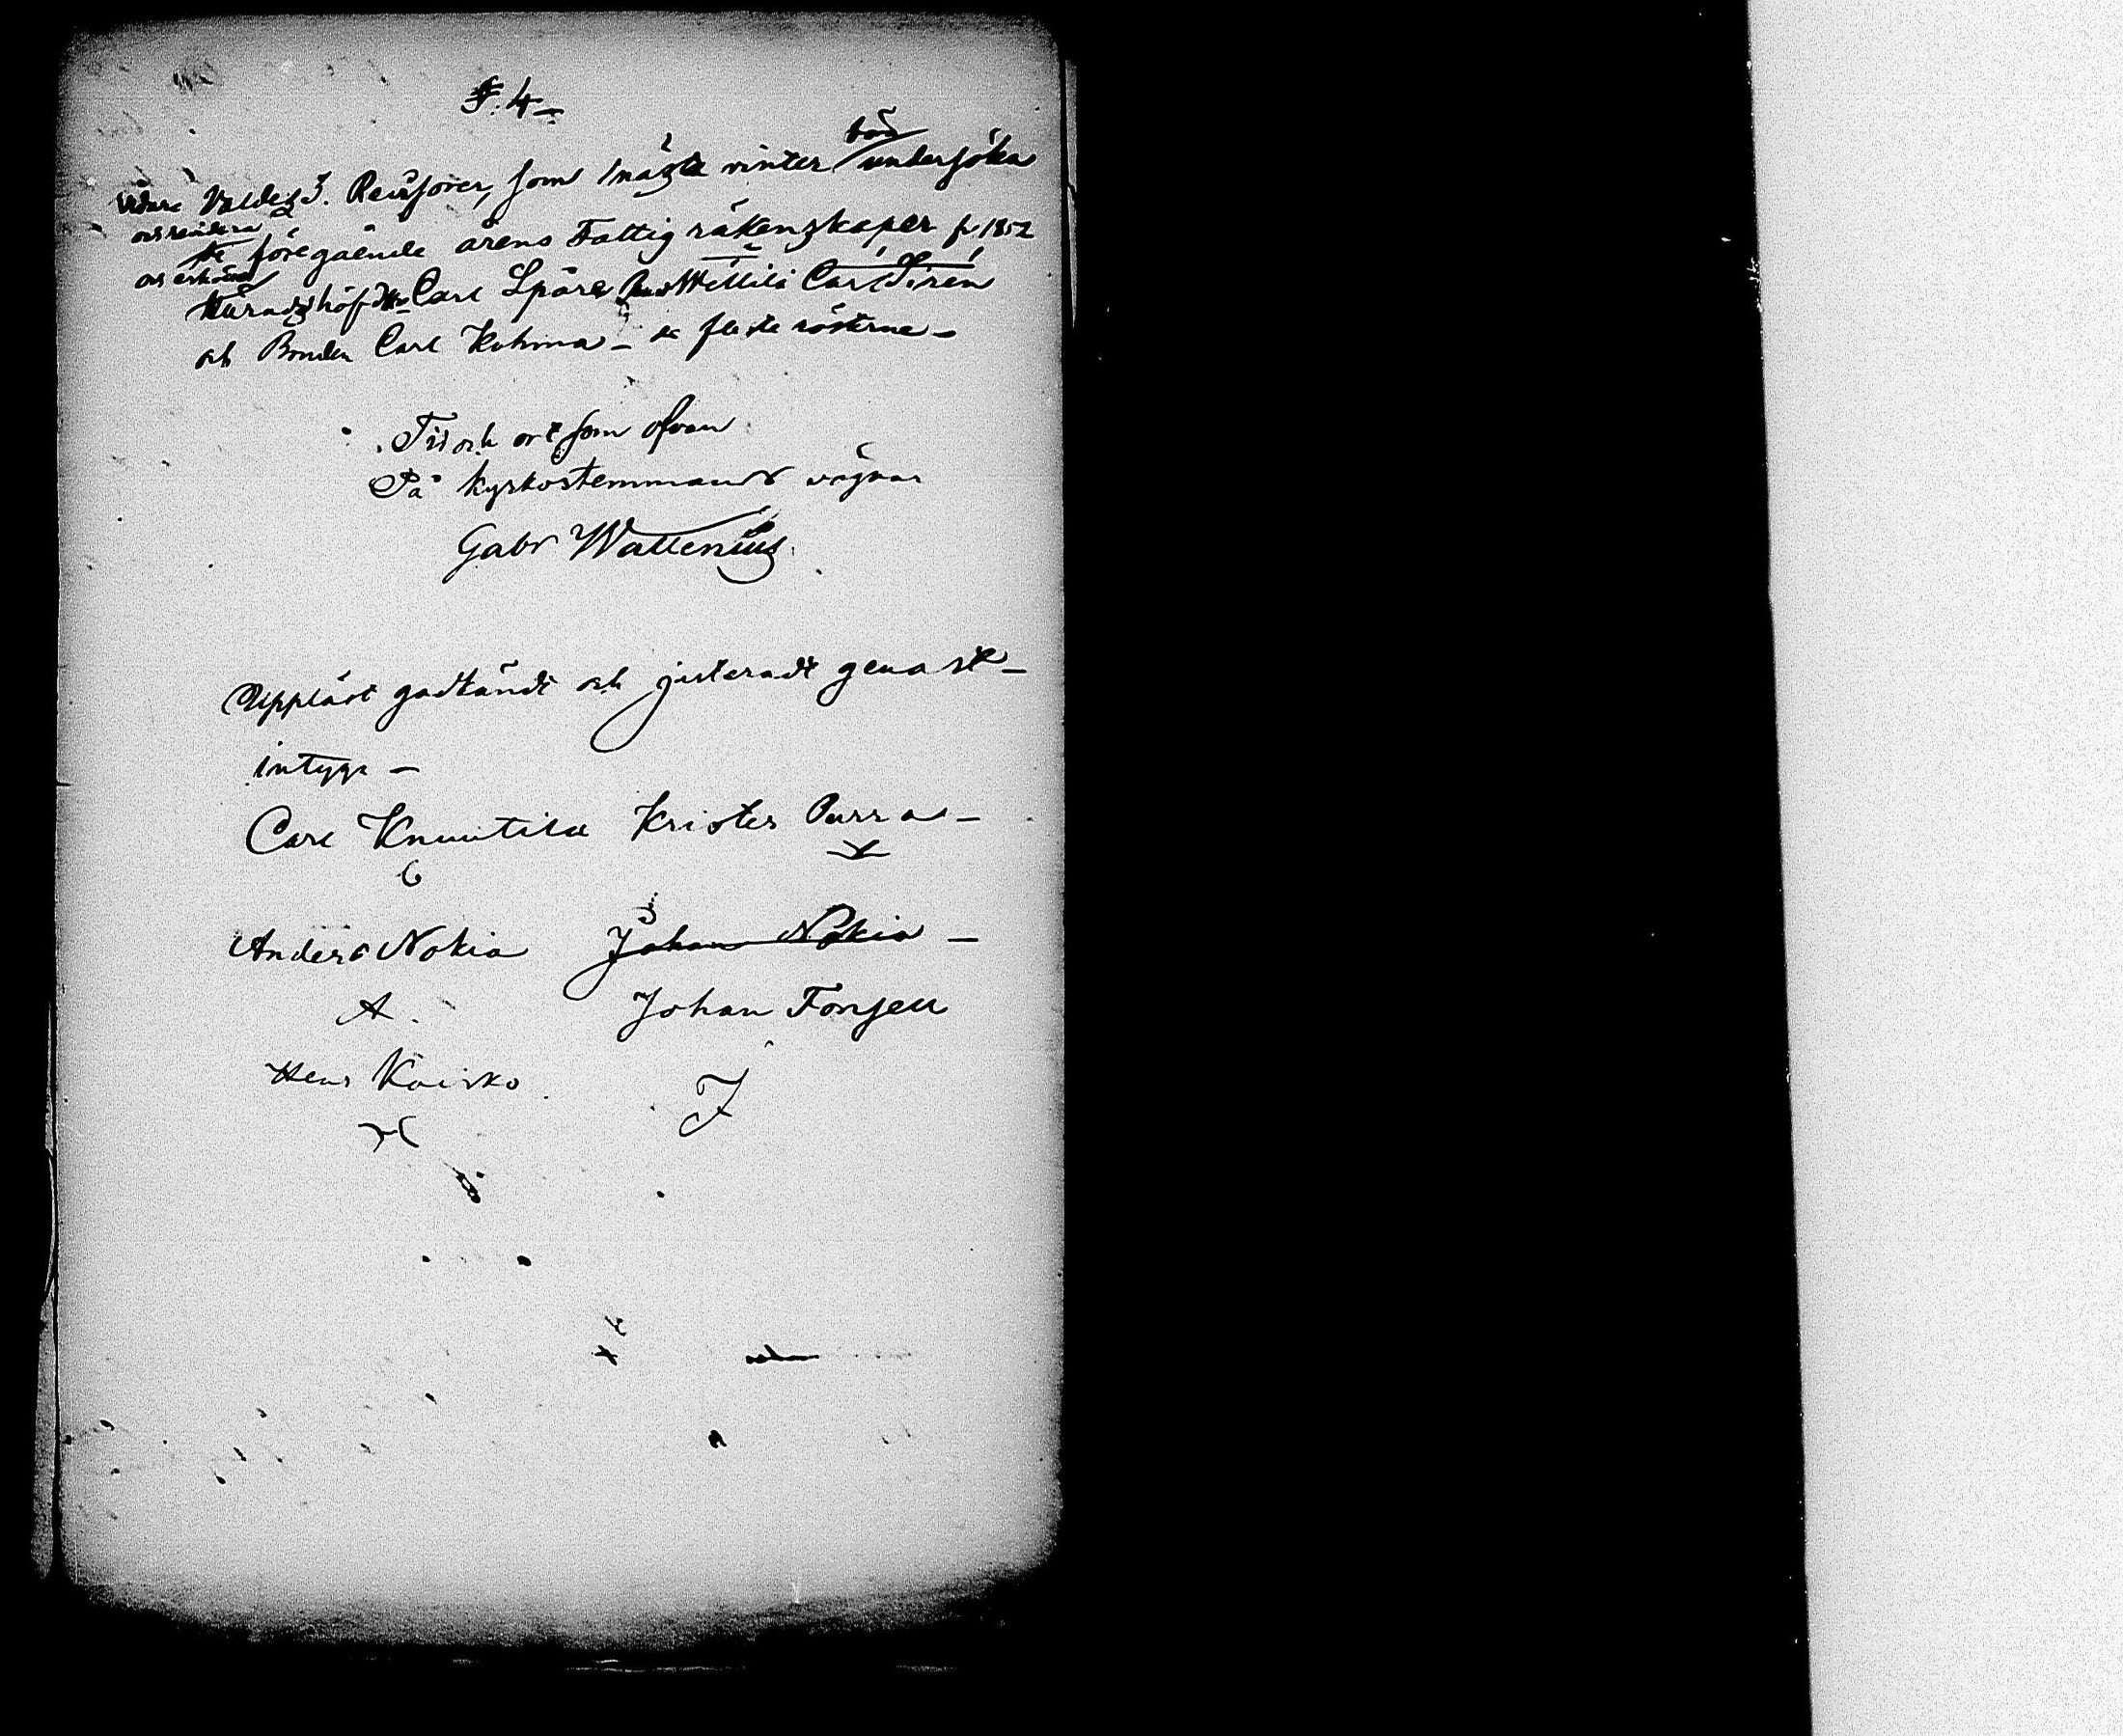 §. 4
vidare Valdes 3. Revisorer, som nästa vinter bör undersöka
och revidera föregående årens Fattig räkenskaper fr 1852
och erhöllo Häradshöfd Carl Spåre Hellilä Carl Sirén
och Bonden Carl Kohma – de flesta rösterne –
Tid och ort som ofvan
På kyrkostemmans vägnar
Gabr Wallenius
Uppläst godkändt och justeradt genast –
intyga –
Carl Knuutila Krister Purra –
Anders Nokia Johan Nokia –
A. Johan Forsell
Henr Koisko
J